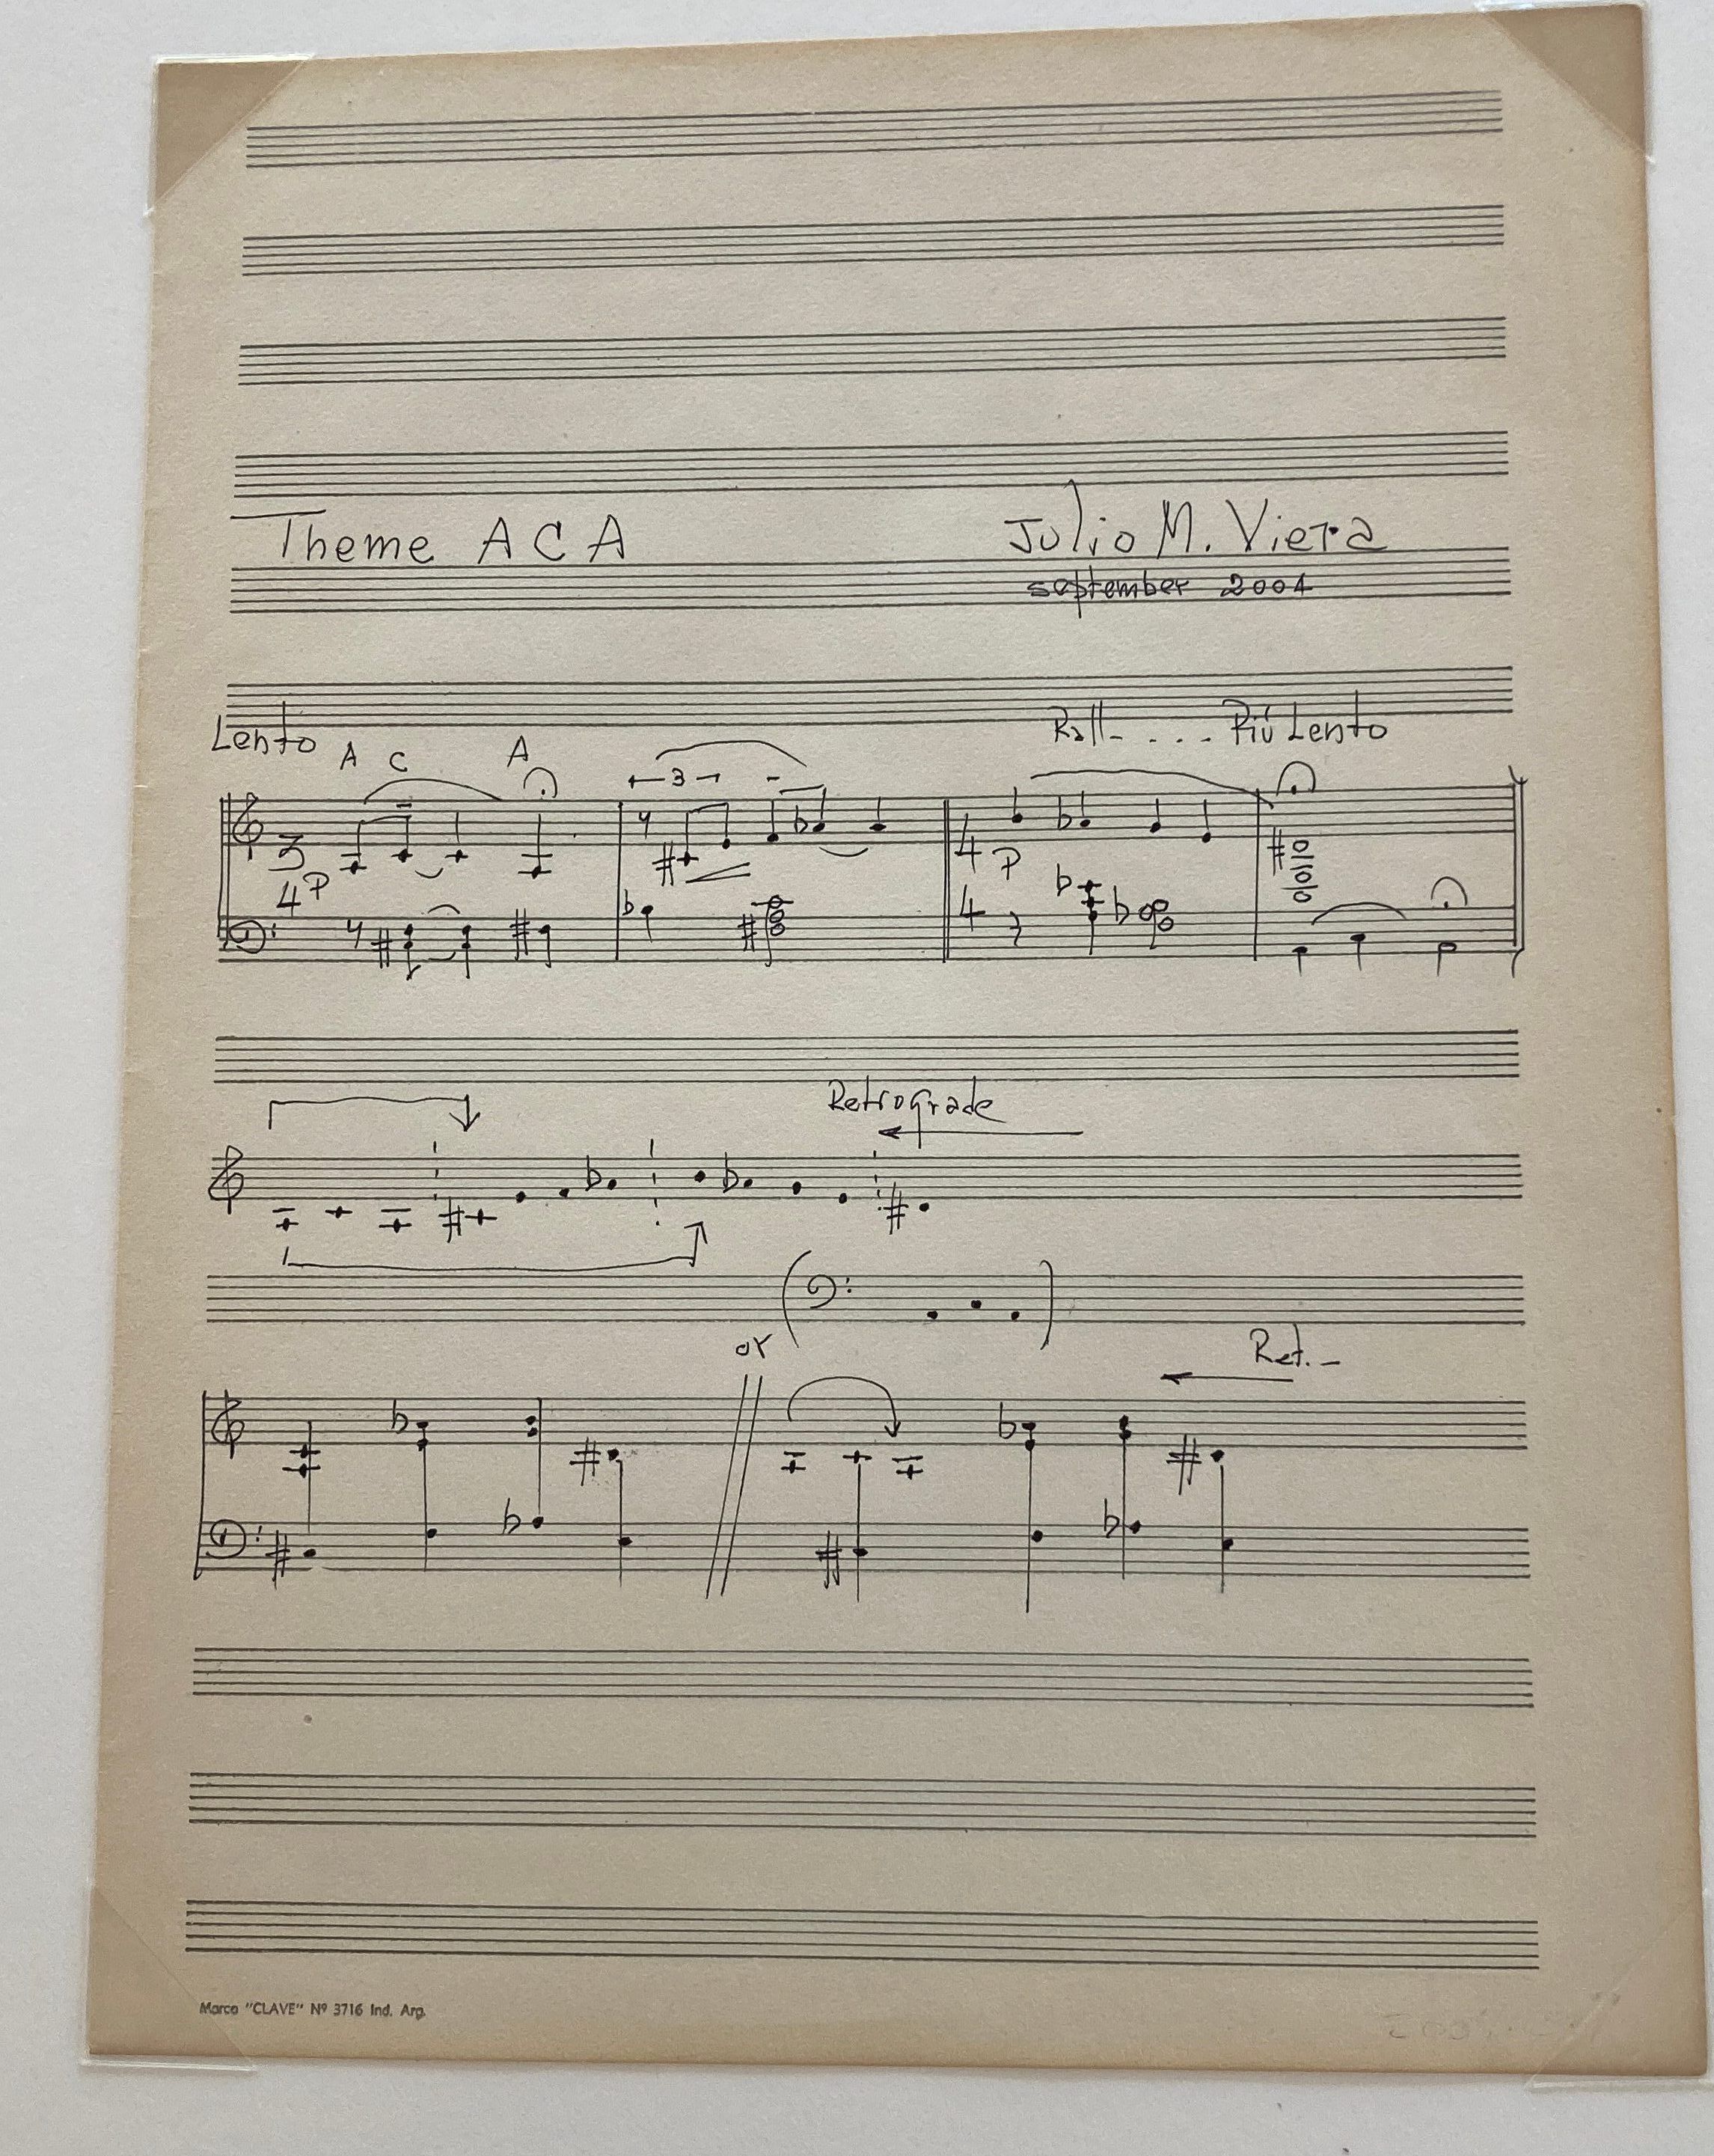 Theme A C A
Julio M. Viera
september 2001
Lento
A C A
3
Rall- . . . . Più Lento
3
4
P
4
4
P
Retrograde
or
Ret. -
Marca "CLAVE" Nº 3716 Ind. Arg.